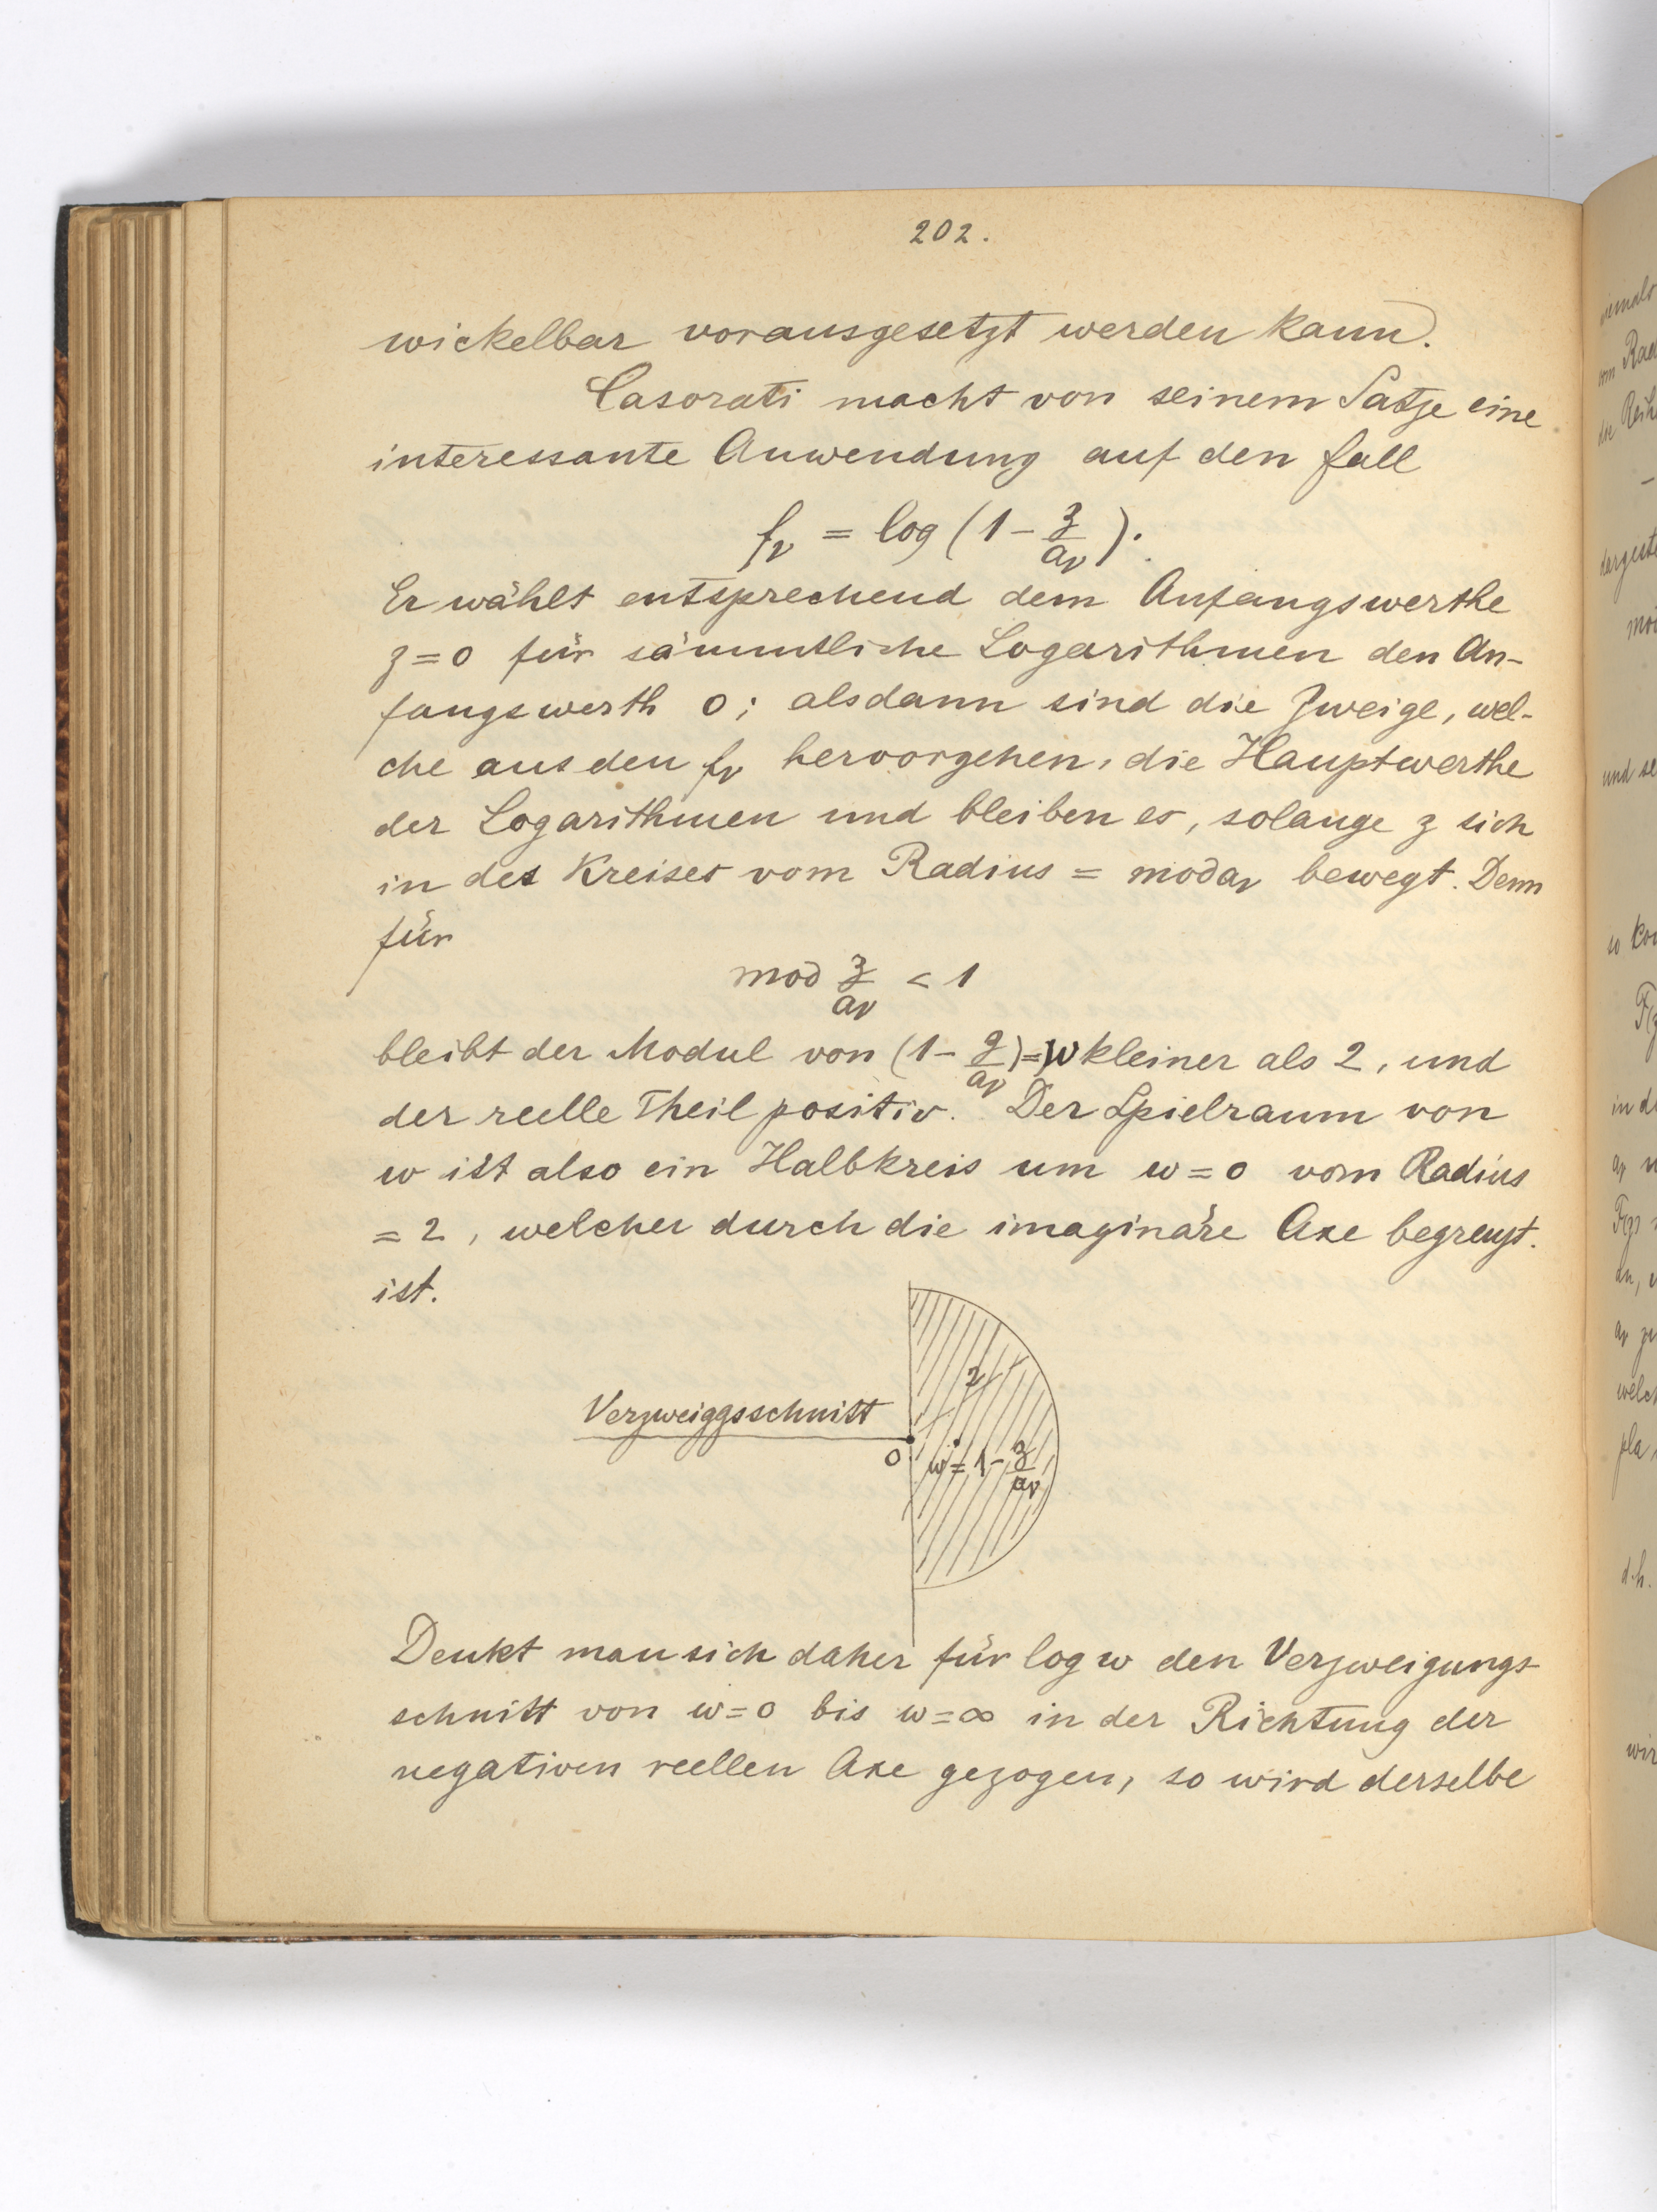 202.
wickelbar vorausgesetzt werden kann.
Casorati macht von seinem Satze eine
interessante Anwendung auf den Fall
f_ν = log (1 - z/a_ν).
Er wählt entsprechend dem Anfangswerthe
z=0 für sämmtliche Logarithmen den An-
fangswerth 0; alsdann sind die Zweige, wel-
che aus den f_ν hervorgehen, die Hauptwerthe
der Logarithmen und bleiben es, solange z sich
in des Kreises vom Radius = mod a_ν bewegt. Denn
für
mod z/a_ν < 1
bleibt der Modul von (1 - z/a_ν) = w kleiner als 2, und
der reelle Theil positiv. Der Spielraum von
w ist also ein Halbkreis um w=0 vom Radius
= 2, welcher durch die imaginäre Axe begrenzt.
ist.
2
Verzweiggsschnitt
0 w = 1 - z/a_ν
Denkt man sich daher für log w den Verzweigungs-
schnitt von w=0 bis w=∞ in der Richtung der
negativen reellen Axe gezogen, so wird derselbe